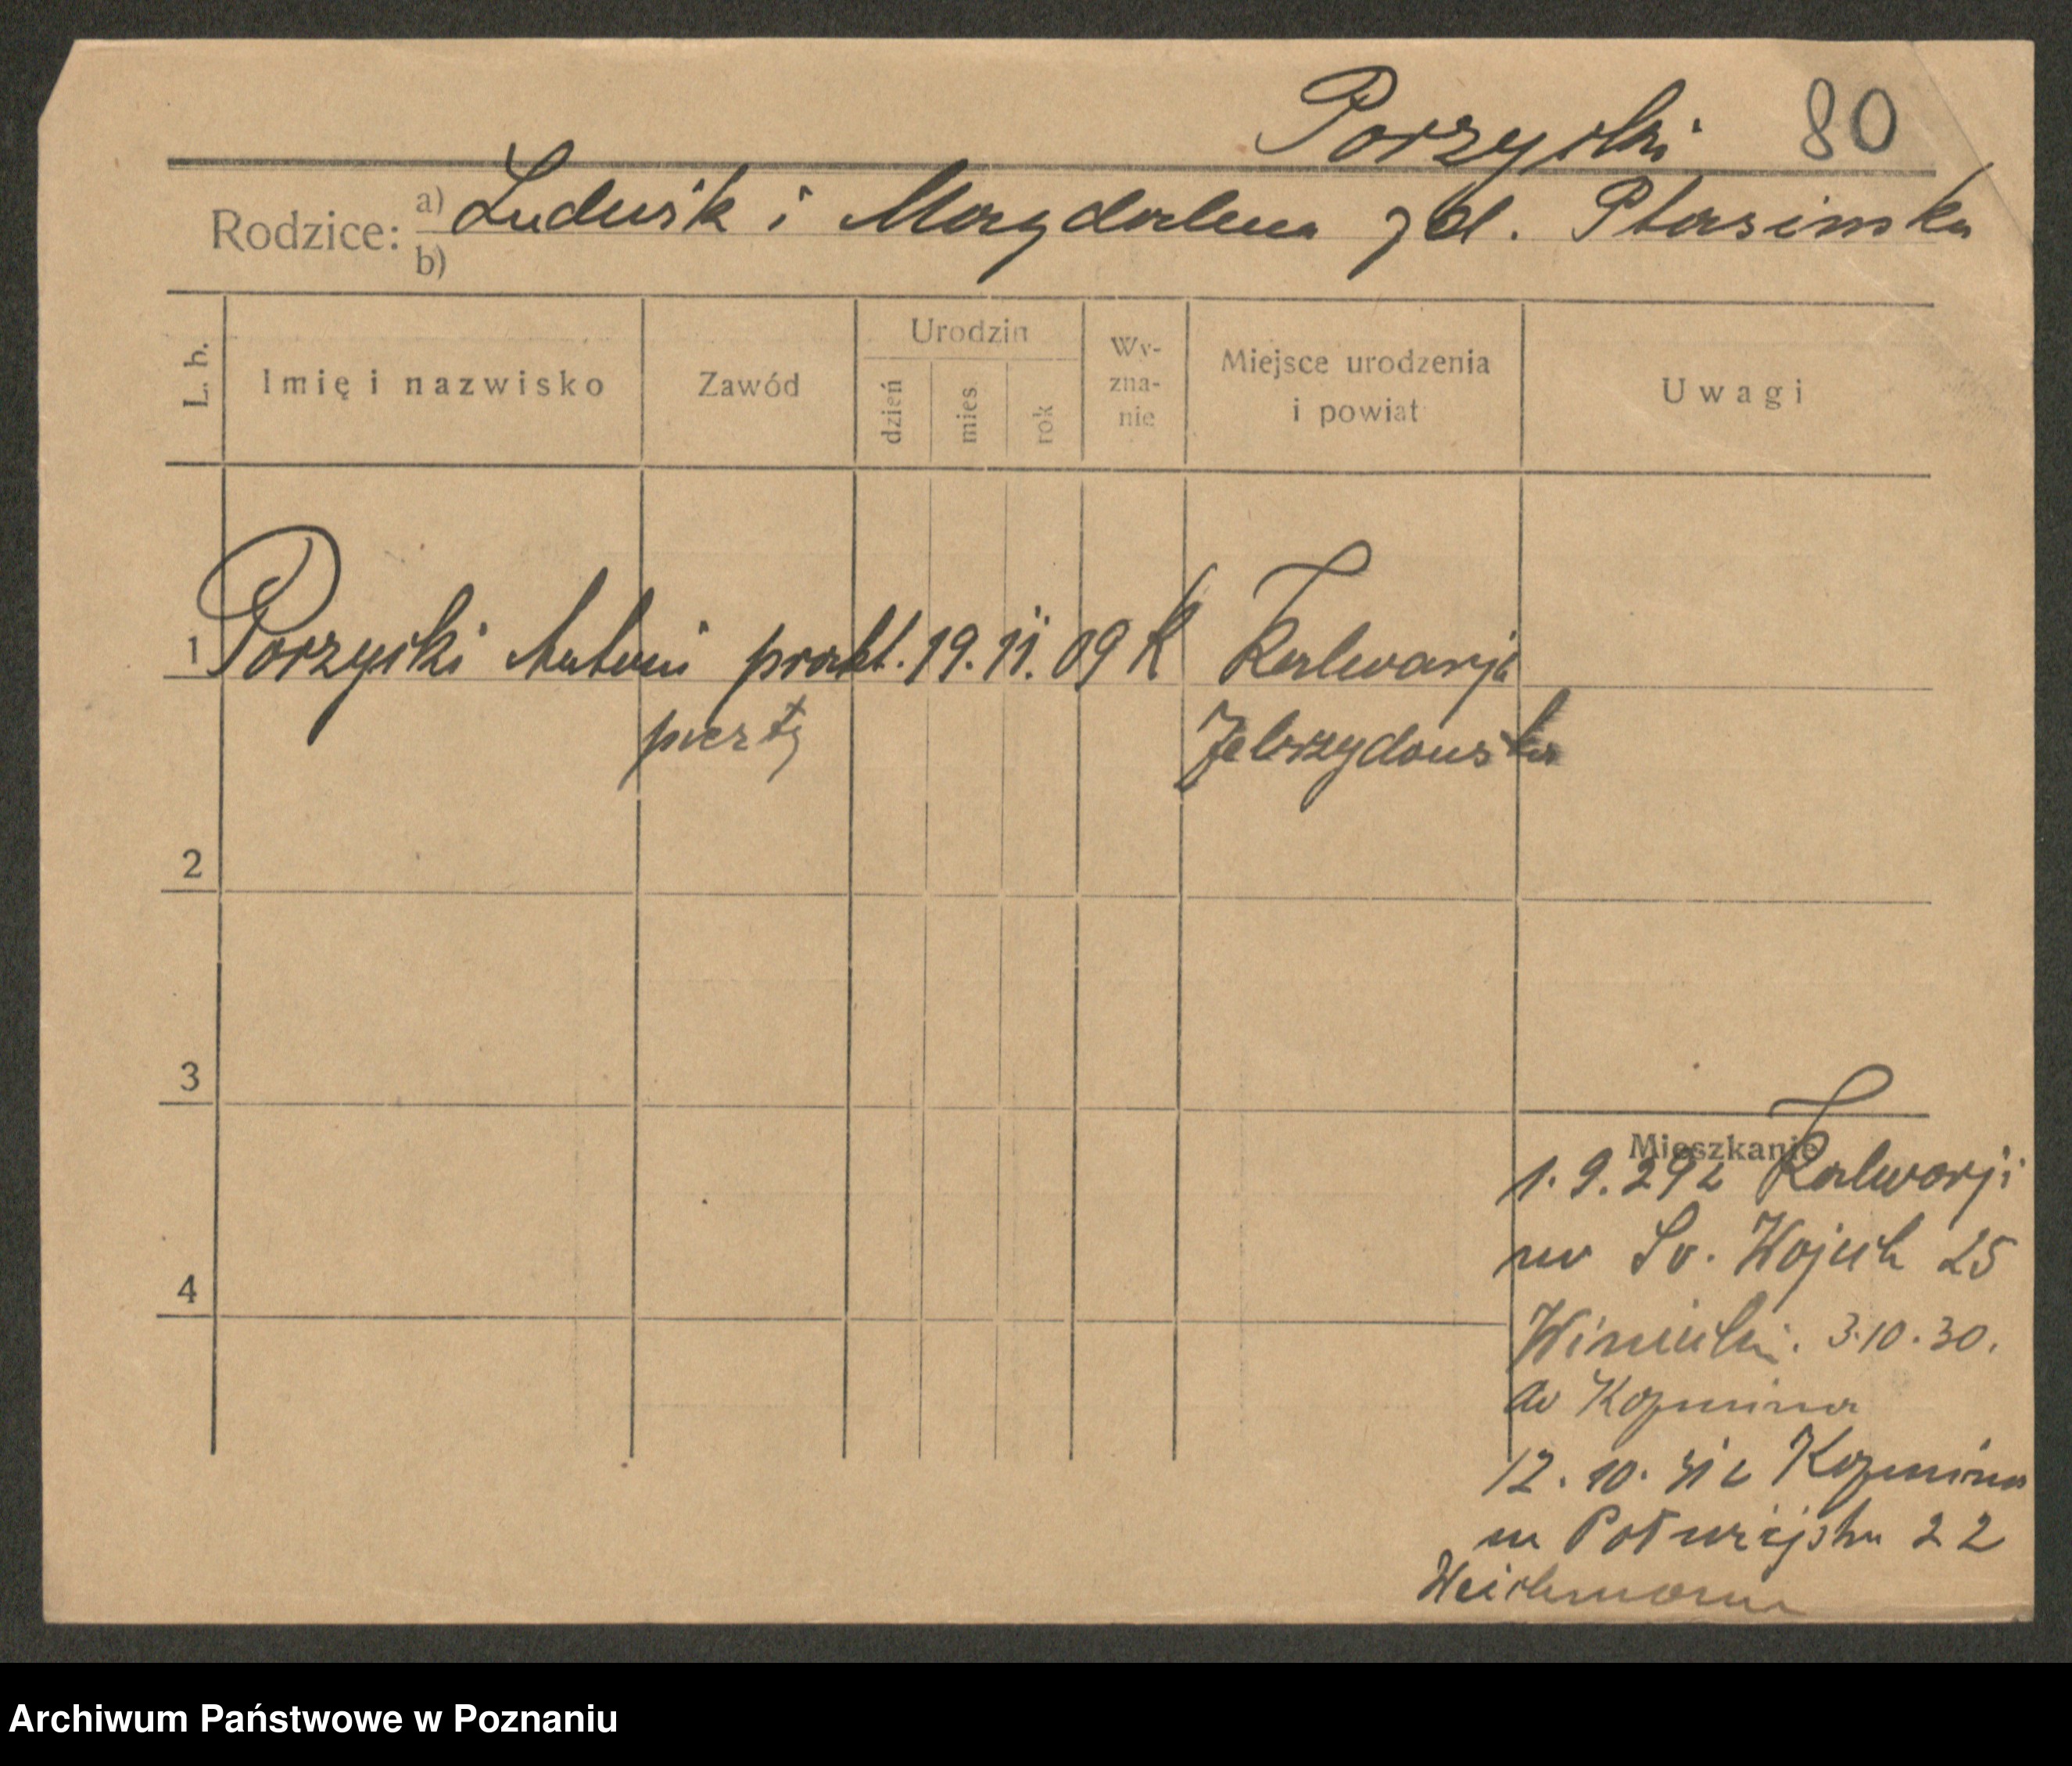 Porzycki 80
Rodzice: a) Ludwik i Magdalena zd. Ptasinska
b)
L. b. Imię i nazwisko Zawód Urodzin dzień mies rok Wy-zna-nie Miejsce urodzenia i powiat Uwagi
1 Porzycki Antoni prakt. 19. 11. 09 K Kalwarja
poczty Zebrzydowska
2
3
Mieszkanie
1. 9. 29 z Kalwarji
na Św. Wojciech 25
4
3.10.30.
do Kozmina
12. 10. 31 z Kozmina
na Półwiejska 22
Archiwum Państwowe w Poznaniu